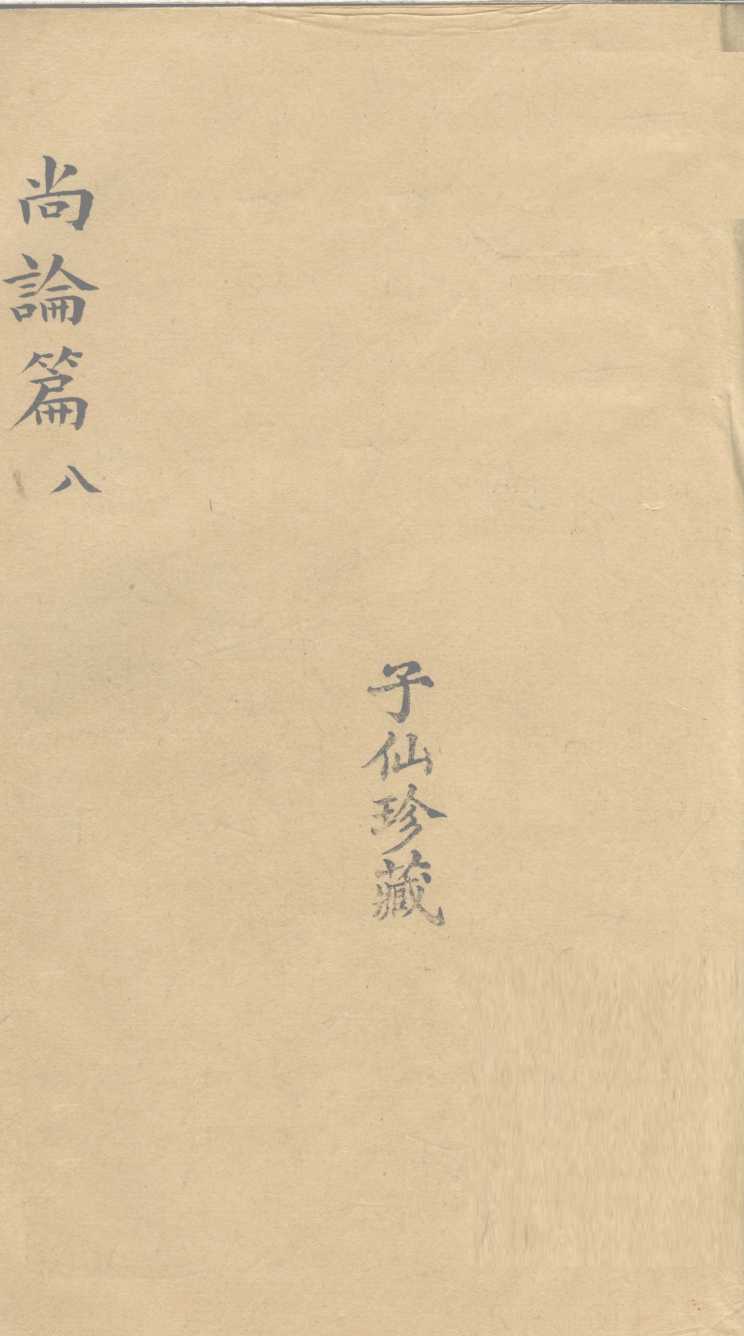 尚論篇 八
子仙珍藏